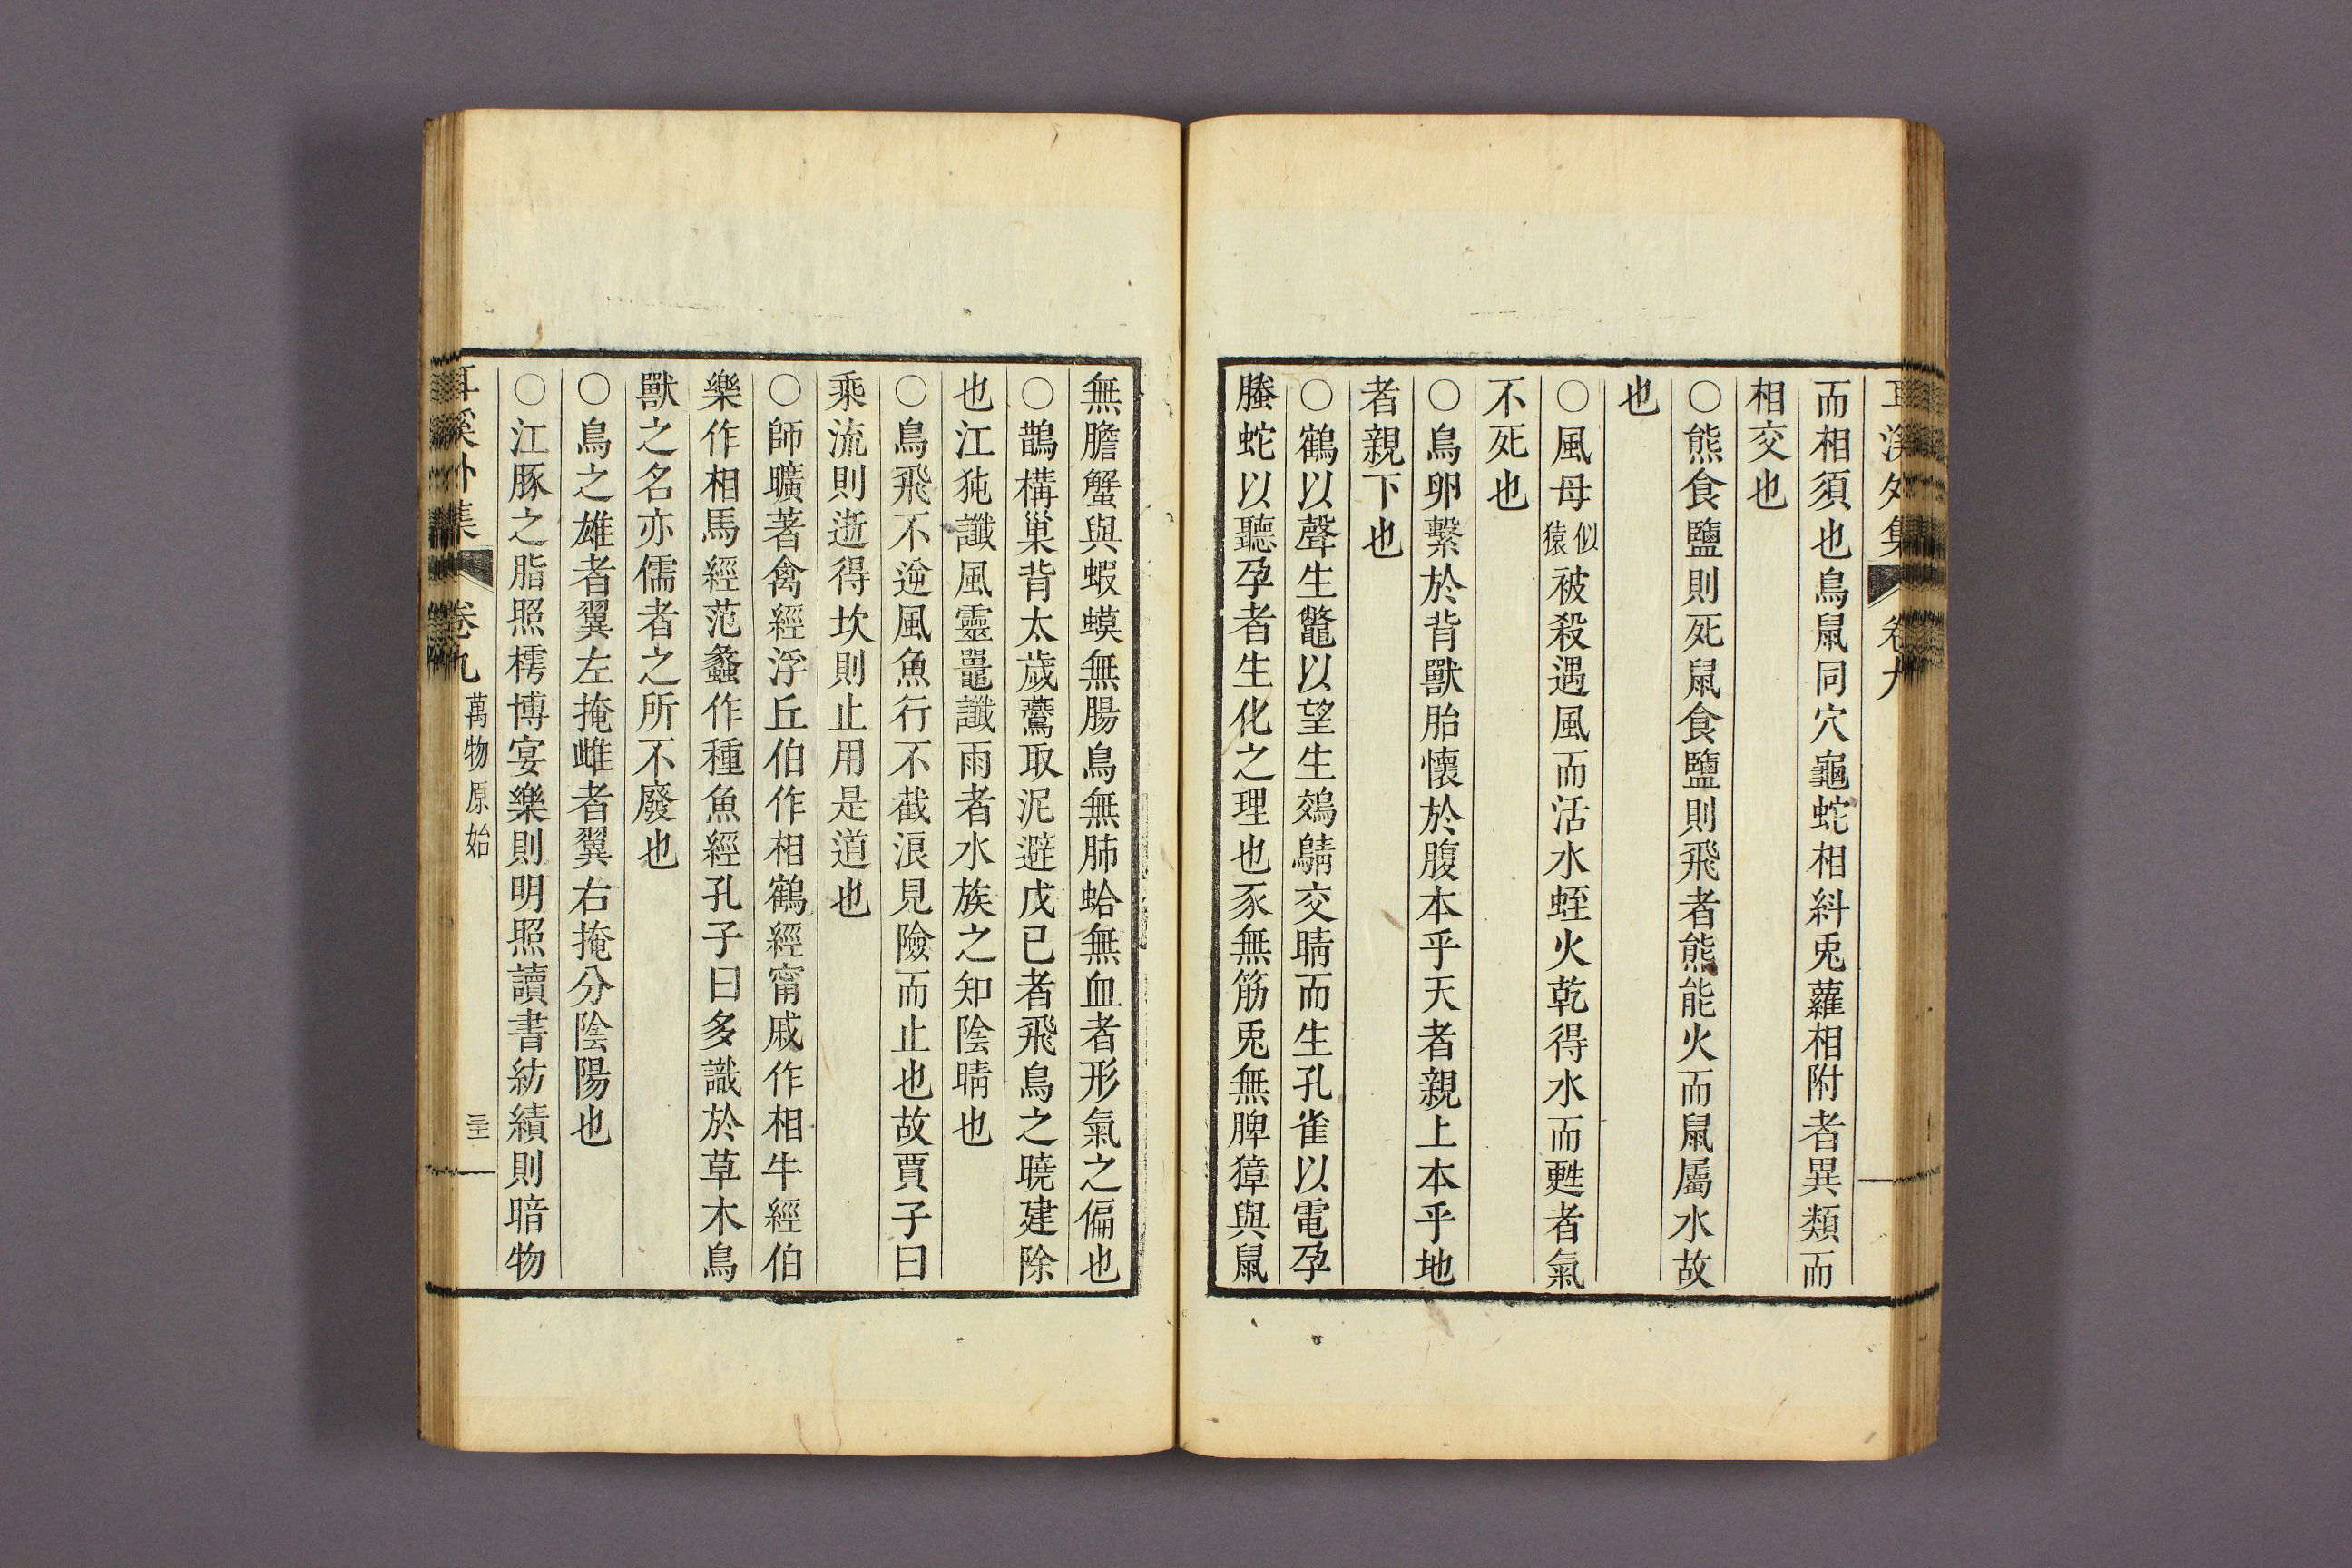 耳溪外集 卷九
而相須也鳥鼠同穴龜蛇相糾兎蘿相附者異類而
相交也
〇熊食鹽則死鼠食鹽則飛者熊能火而鼠屬水故
也
〇風母似猿被殺遇風而活水蛭火乾得水而甦者氣
不死也
〇鳥卵繫於背獸胎懷於腹本乎天者親上本乎地
者親下也
〇鶴以聲生鼈以望生鵁鶄交睛而生孔雀以電孕
螣蛇以聽孕者生化之理也豕無筋兎無脾獐與鼠
無膽蟹與蝦蟆無腸鳥無肺蛤無血者形氣之偏也
〇鵲構巢背太歲鷰取泥避戊已者飛鳥之曉建除
也江㹠讖風靈鼉讖雨者水族之知陰晴也
〇鳥飛不逆風魚行不截浪見險而止也故賈子曰
乘流則逝得坎則止用是道也
〇師曠著禽經浮丘伯作相鶴經甯戚作相牛經伯
樂作相馬經范蠡作種魚經孔子曰多識於草木鳥
獸之名亦儒者之所不廢也
〇鳥之雄者翼左掩雌者翼右掩分陰陽也
〇江豚之脂照樗博宴樂則明照讀書紡績則暗物
耳溪外集 卷九 萬物原始